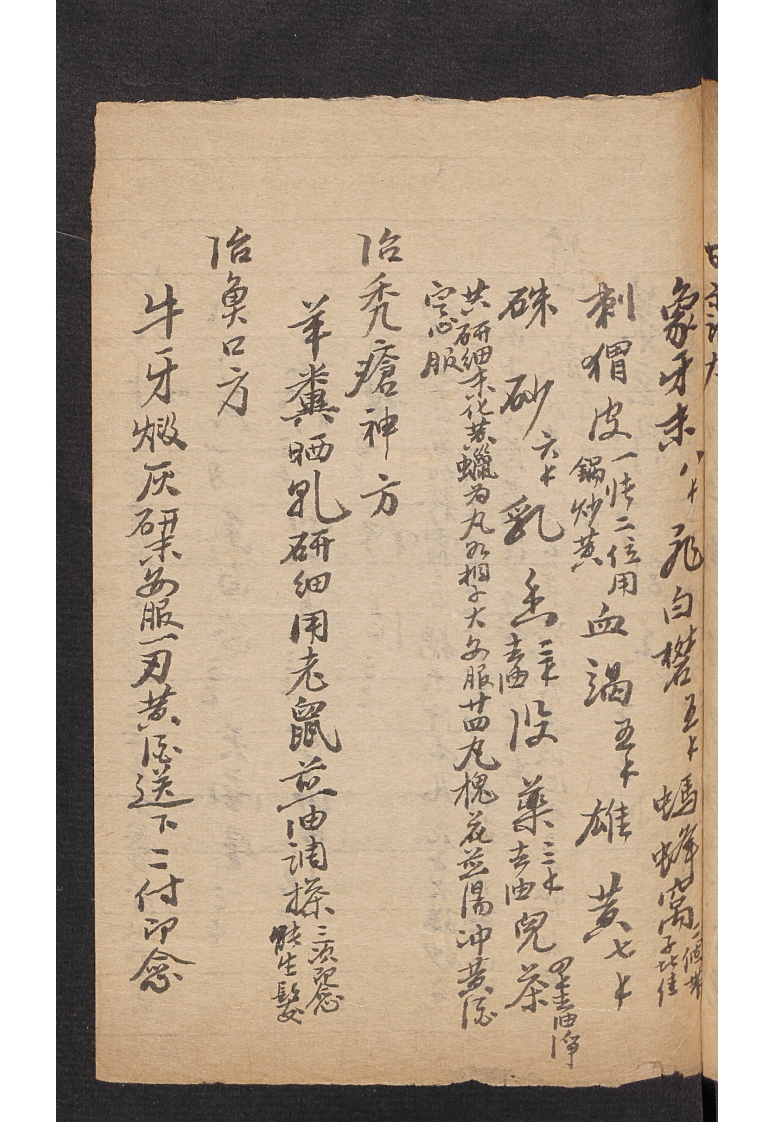 象牙末八卜 飛白礬五卜 螞蜂窩二個
子者佳
刺猬皮一張二位用
鍋炒黃
血竭五卜 雄黃七卜
硃砂六卜 乳香三卜去油 没藥三卜去油 兒茶四卜去油淨
共研細末化黃蠟为丸如梧子大每服廿四丸槐花煎湯冲黃酒
空心服
治秃瘡神方
羊糞晒乳研細用老鼠煎油調搽三次即愈
能生髮
治魚口方
牛牙煅灰研末每服一刄黄酒送下二付即愈